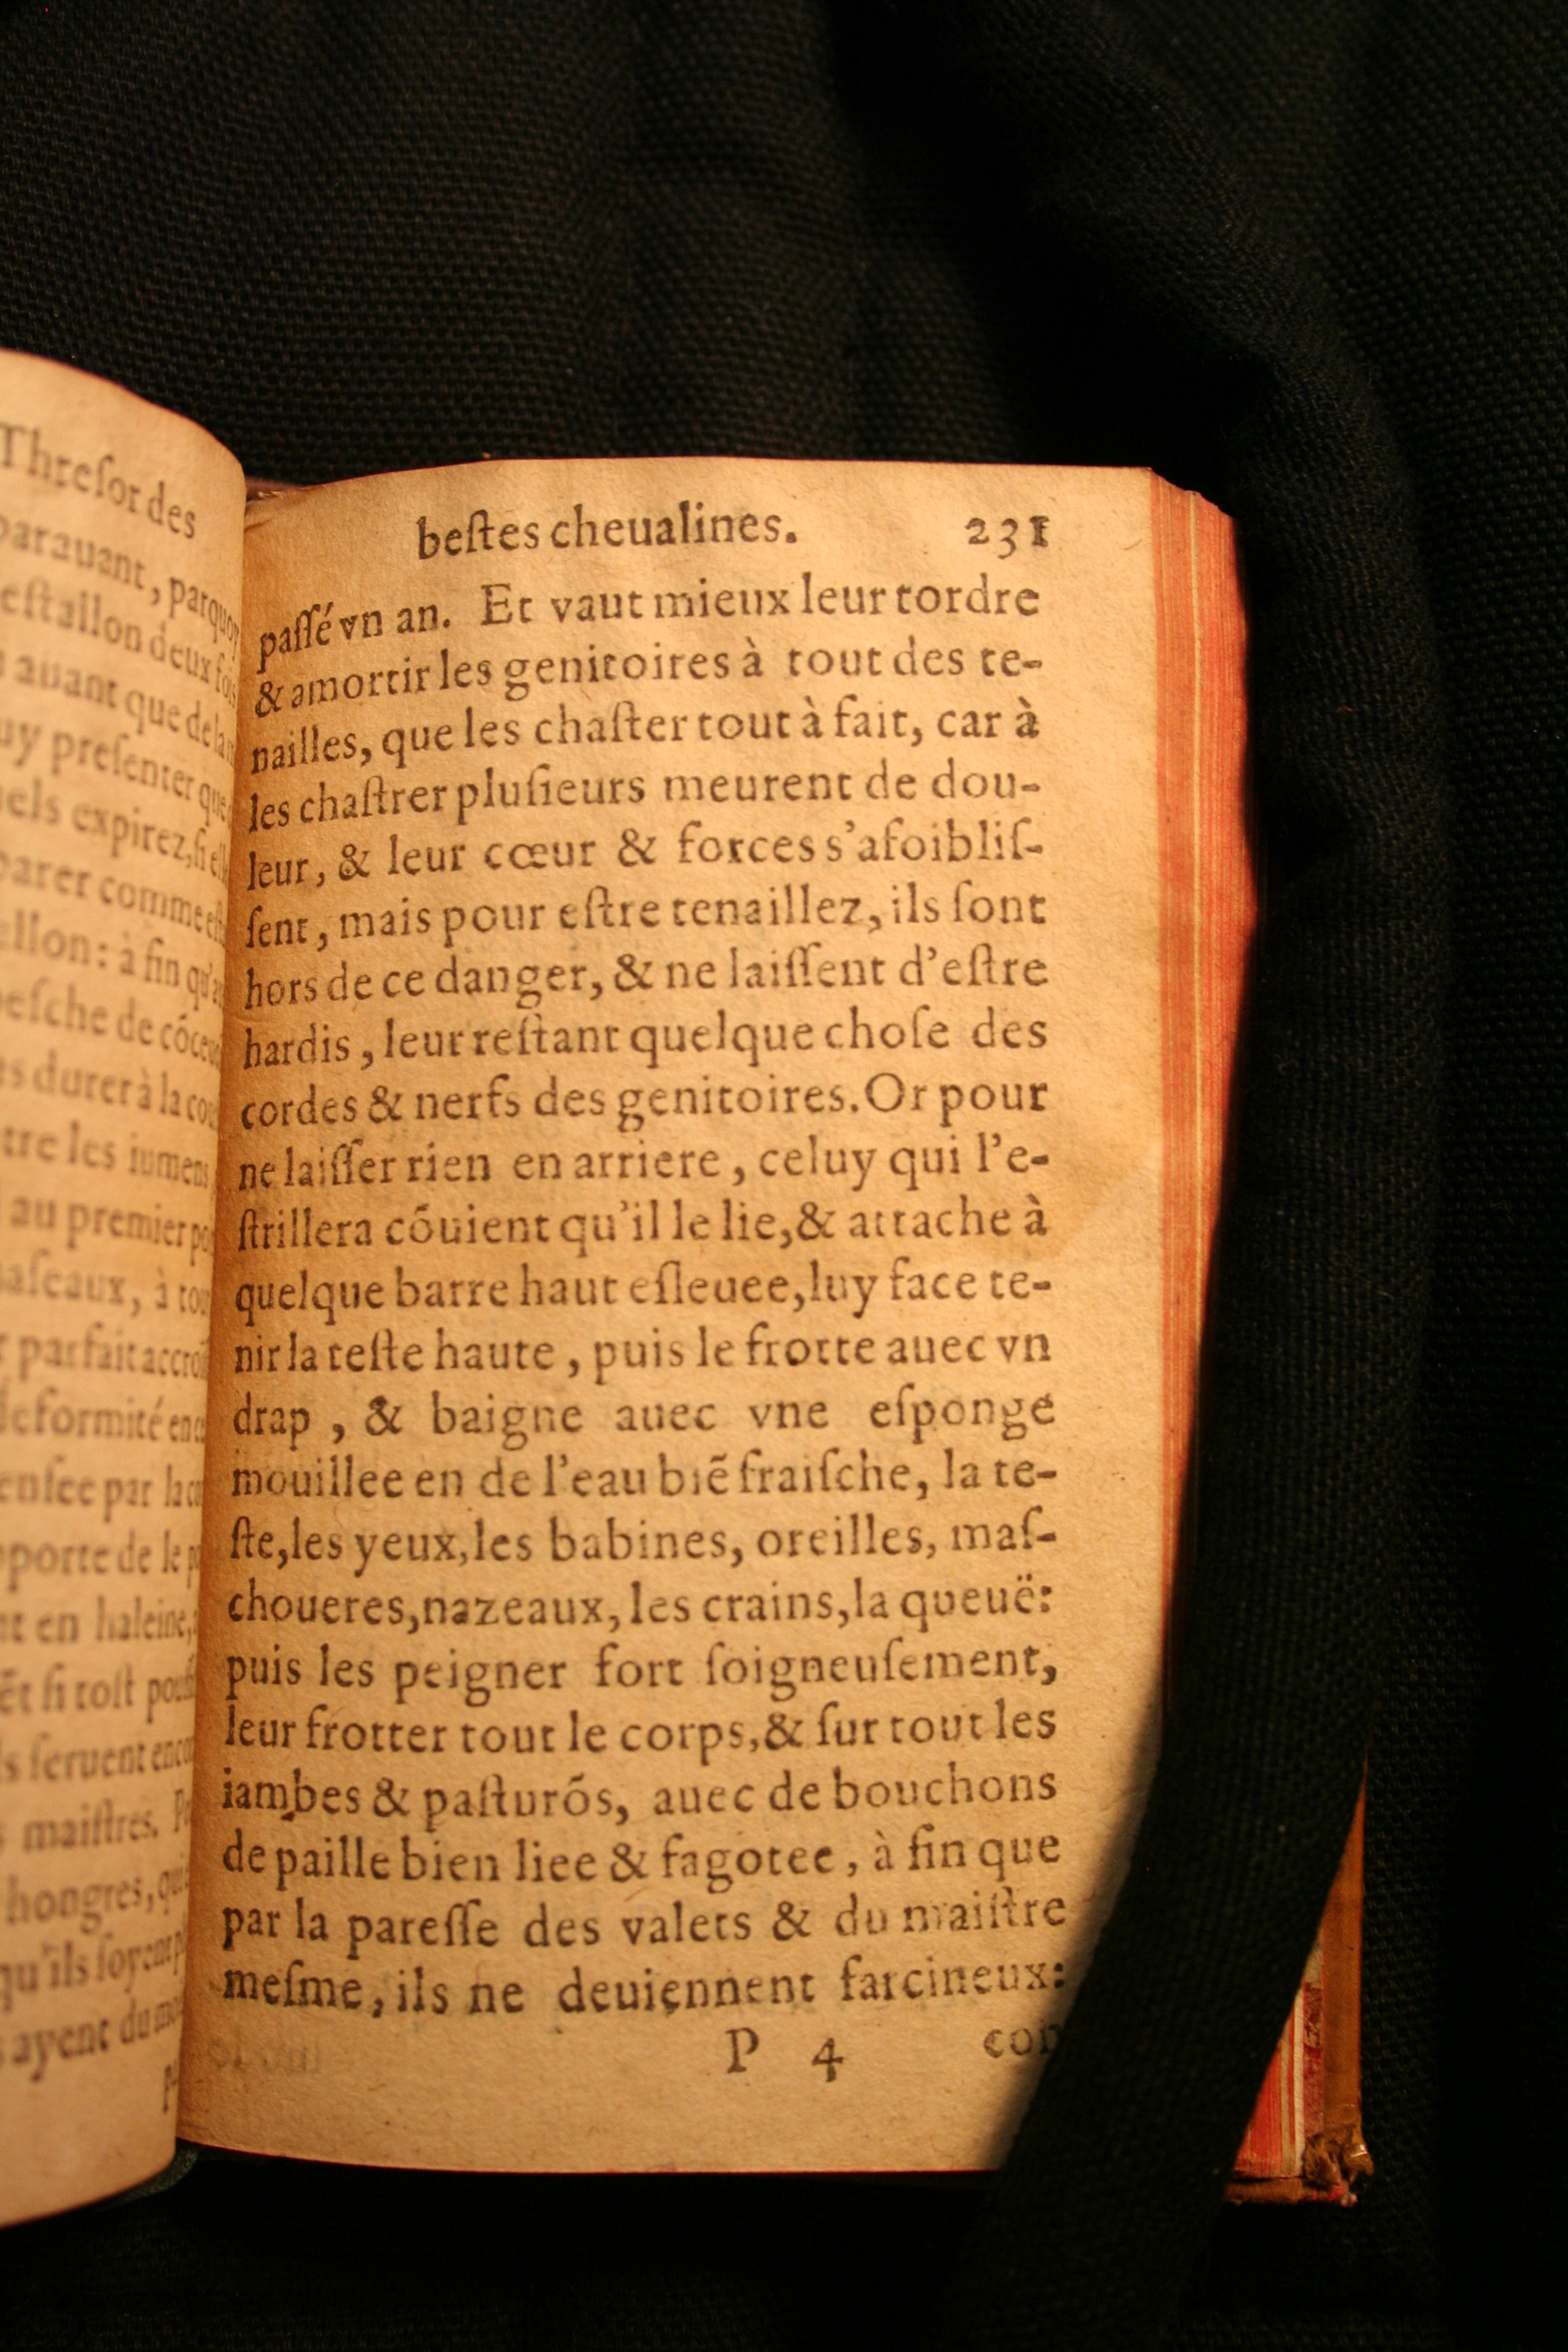 Threſor des
parauant, parquoy
eſtallon deux fois
auant que de
uy preſenter que
expirez, ſi
parer comme
à fin
de
durer à la
tre les iumens
au premier
naſeaux, à
parfait
deformité
par la
porte de le
en haleine,
ſi toſt
ſeruent
maiſtres.
hongres,
qu'ils ſoyent
ayent du
beſtes cheualines. 231
paſſé vn an. Et vaut mieux leur tordre
& amortir les genitoires à tout des te-
nailles, que les chaſter tout à fait, car à
les chaſtrer pluſieurs meurent de dou-
leur, & leur cœur & forces s'afoibliſ-
ſent, mais pour eſtre tenaillez, ils ſont
hors de ce danger, & ne laiſſent d'eſtre
hardis, leur reſtant quelque choſe des
cordes & nerfs des genitoires. Or pour
ne laiſſer rien en arriere, celuy qui l'e-
ſtrillera cõuient qu'il le lie, & attache à
quelque barre haut eſleuee, luy face te-
nir la teſte haute, puis le frotte auec vn
drap, & baigne auec vne eſponge
mouillee en de l'eau biẽ fraiſche, la te-
ſte, les yeux, les babines, oreilles, maſ-
choueres, nazeaux, les crains, la queuë:
puis les peigner fort ſoigneuſement,
leur frotter tout le corps, & ſur tout les
iambes & paſturõs, auec de bouchons
de paille bien liee & fagotee, à fin que
par la pareſſe des valets & du maiſtre
meſme, ils ne deuiennent farcineux:
P 4